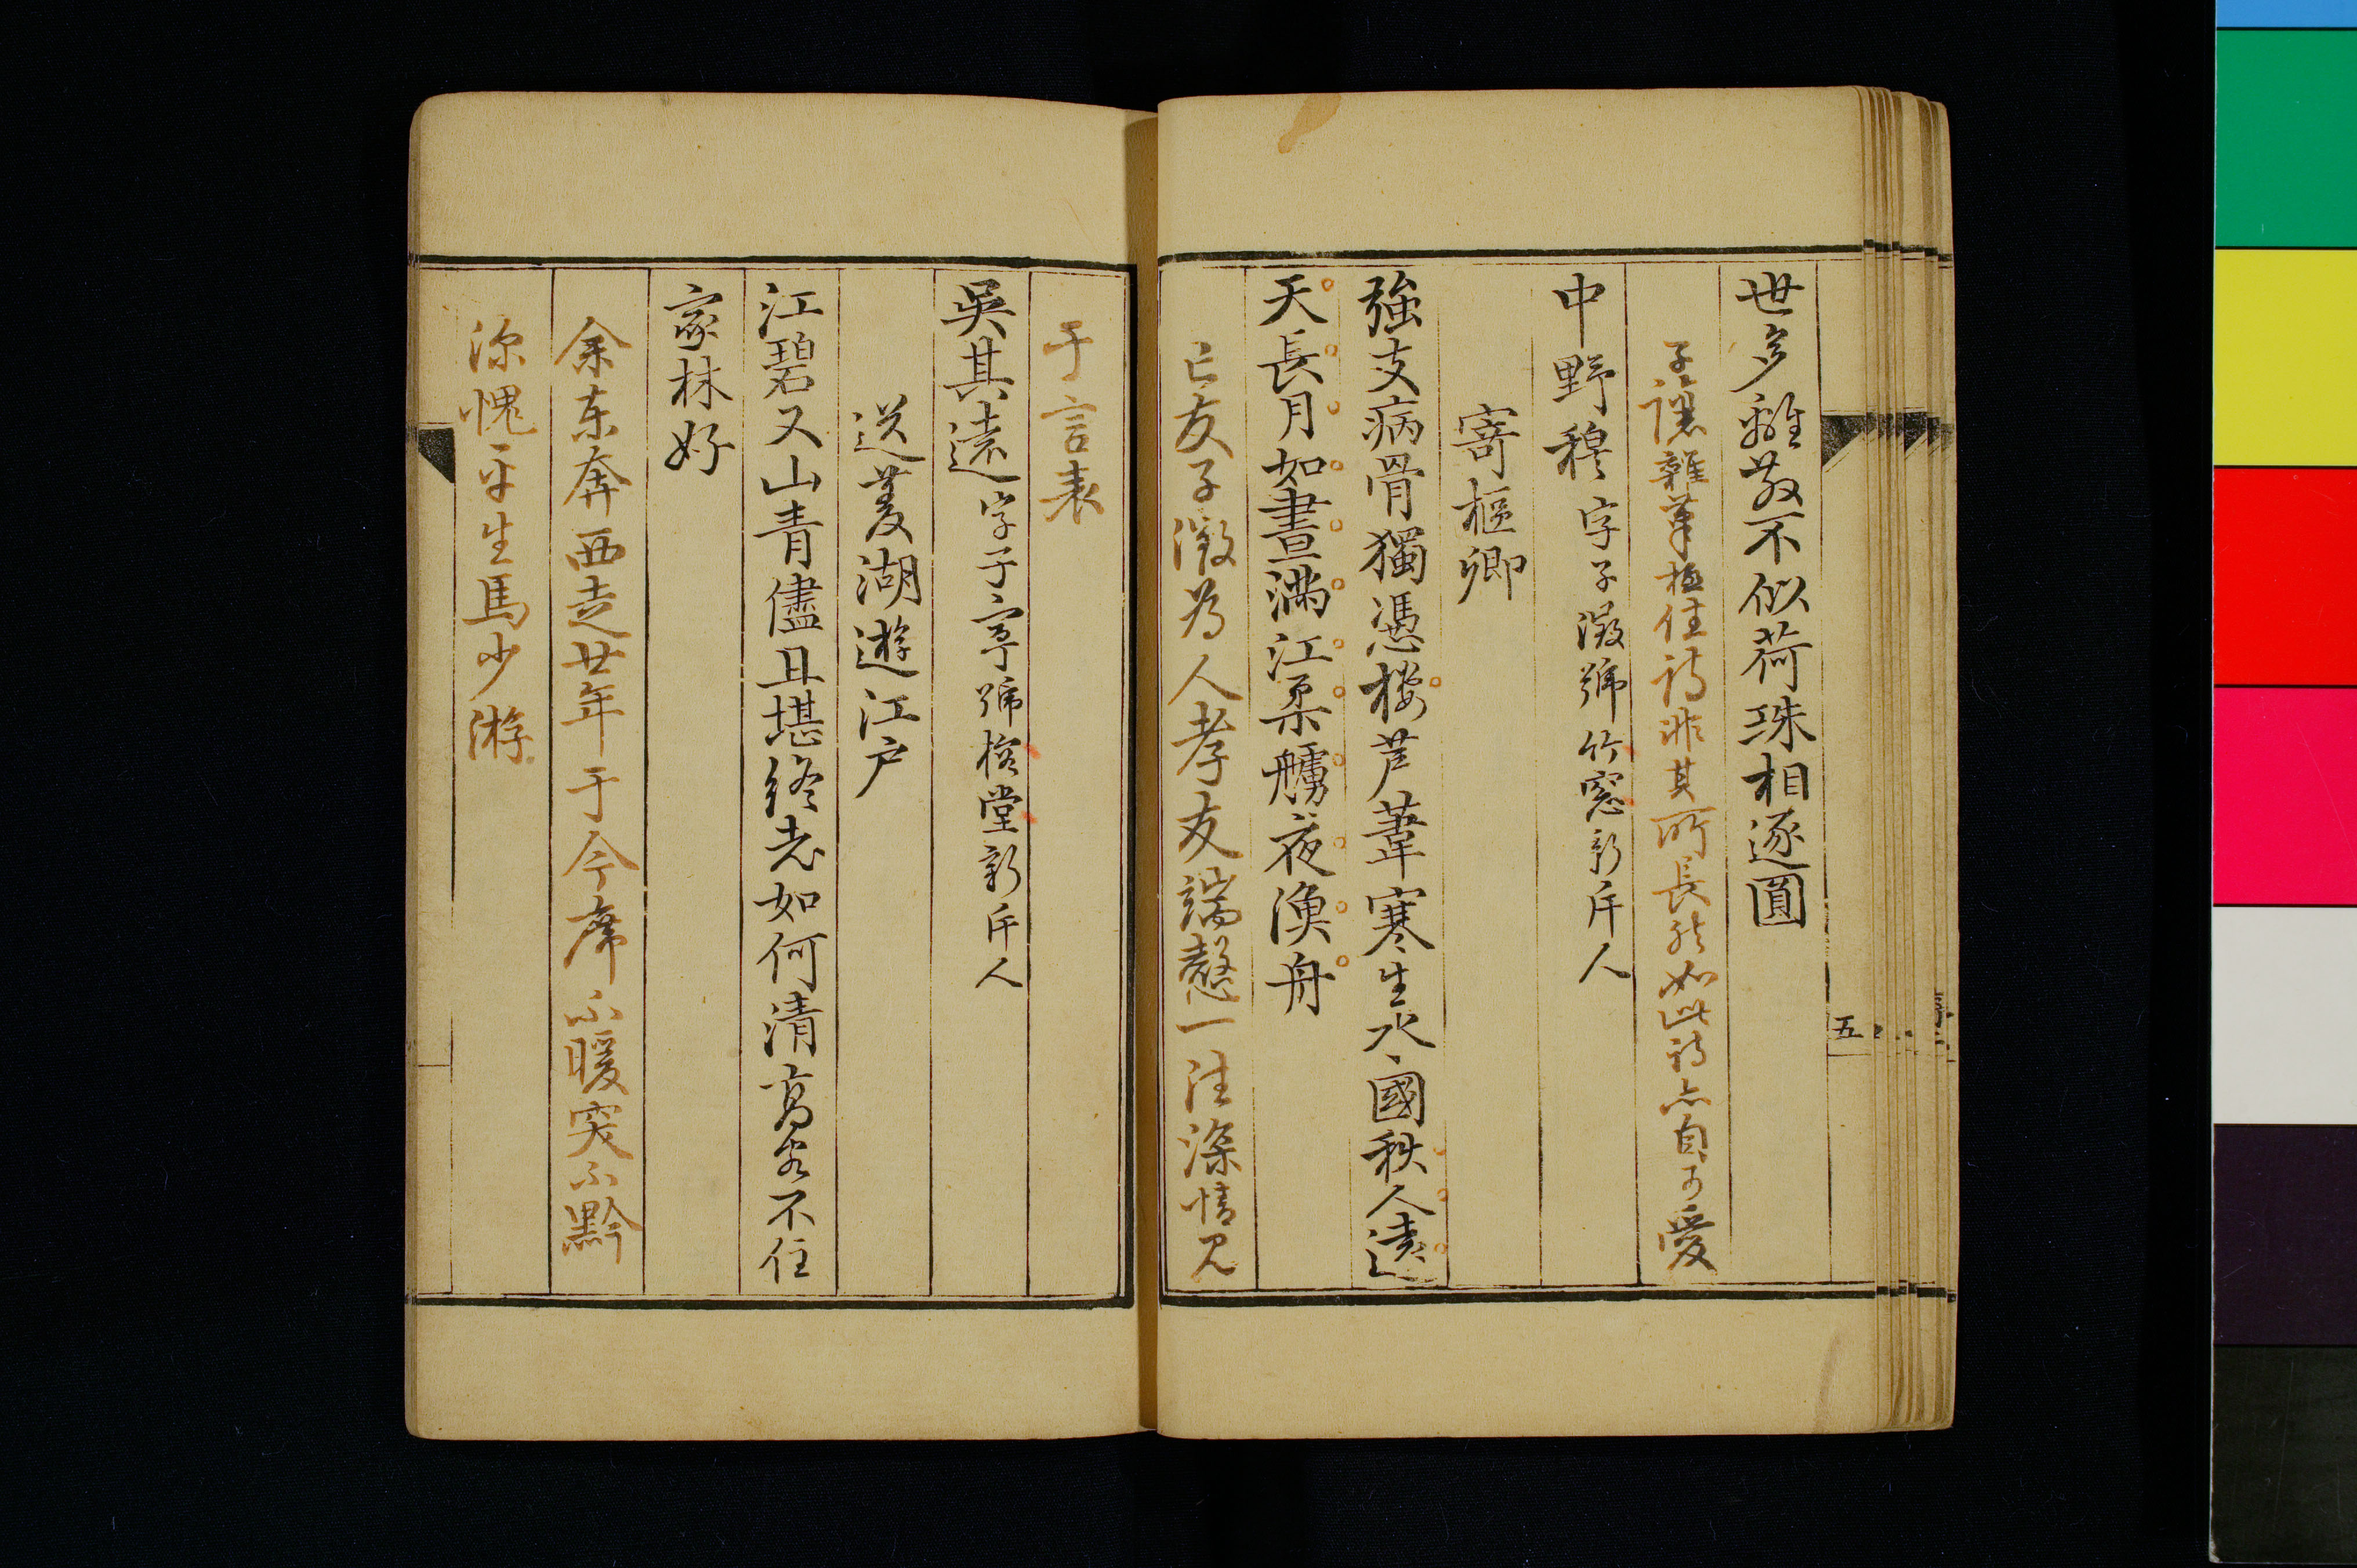 世多離散不似荷珠相逐圓
子讓雜筆極佳詩非其所長然如此詩亦自可愛
中野穆字子澂號竹窓新斥人
寄樞卿
強支病骨獨憑楼芦葦寒生水國秋人遠
天長月如晝滿江柔艣夜漁舟
亡友子澂為人孝友端慤一往深情見
五
于言表
吳其遠字子寧號榕堂新斥人
送菱湖遊江户
江碧又山青儘且堪終老如何清高客不住
家林好
余东奔西走廿年于今席不暖突不黔
深愧平生馬少游